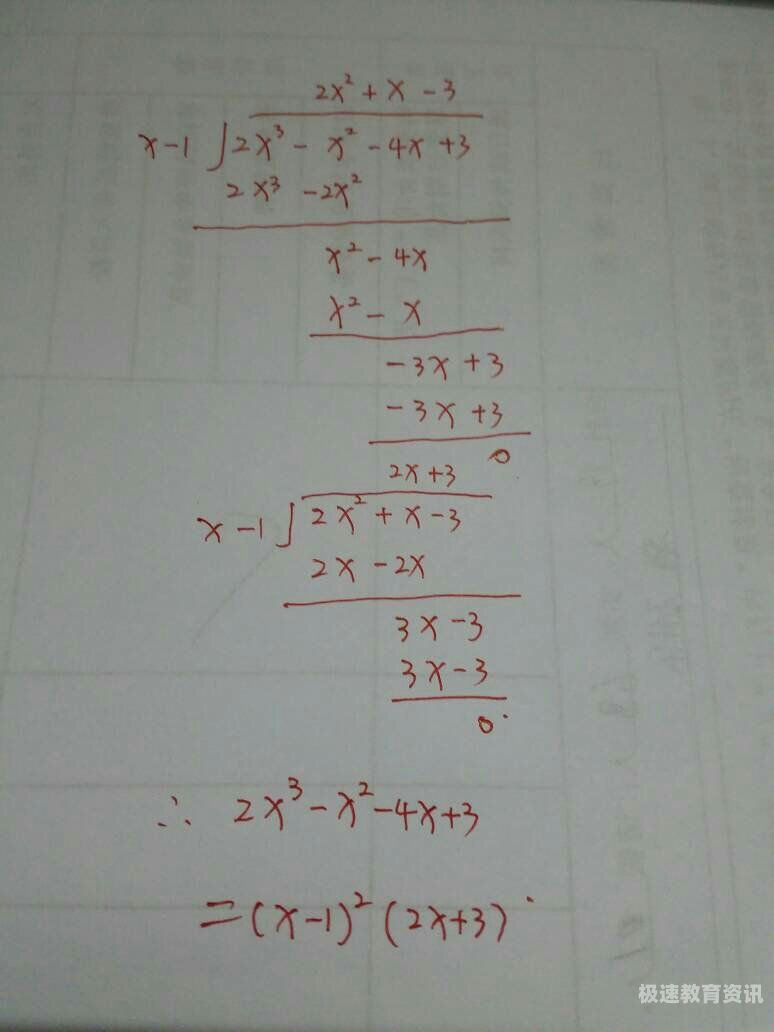 2x² + x - 3
x-1 ) 2x³ - x² - 4x + 3
2x³ - 2x²
x² - 4x
x² - x
-3x + 3
-3x + 3
0
2x+3
x-1 ) 2x² + x - 3
2x - 2x
3x - 3
3x - 3
0
∴ 2x³ - x² - 4x + 3
= (x-1)² (2x+3)
极速教育资讯